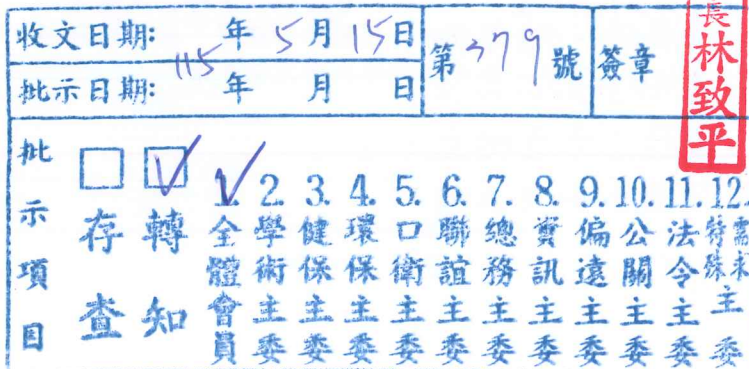 收文日期: 115年5月15日
批示日期: 年 月 日
第379號
簽章
長林致平
批示項目
☐存查
☑轉知
✓1.全體會員
2.學術主委
3.健保主委
4.環保主委
5.口衛主委
6.聯誼主委
7.總務主委
8.資訊主委
9.偏遠主委
10.公關主委
11.法令主委
12.特殊需求主委